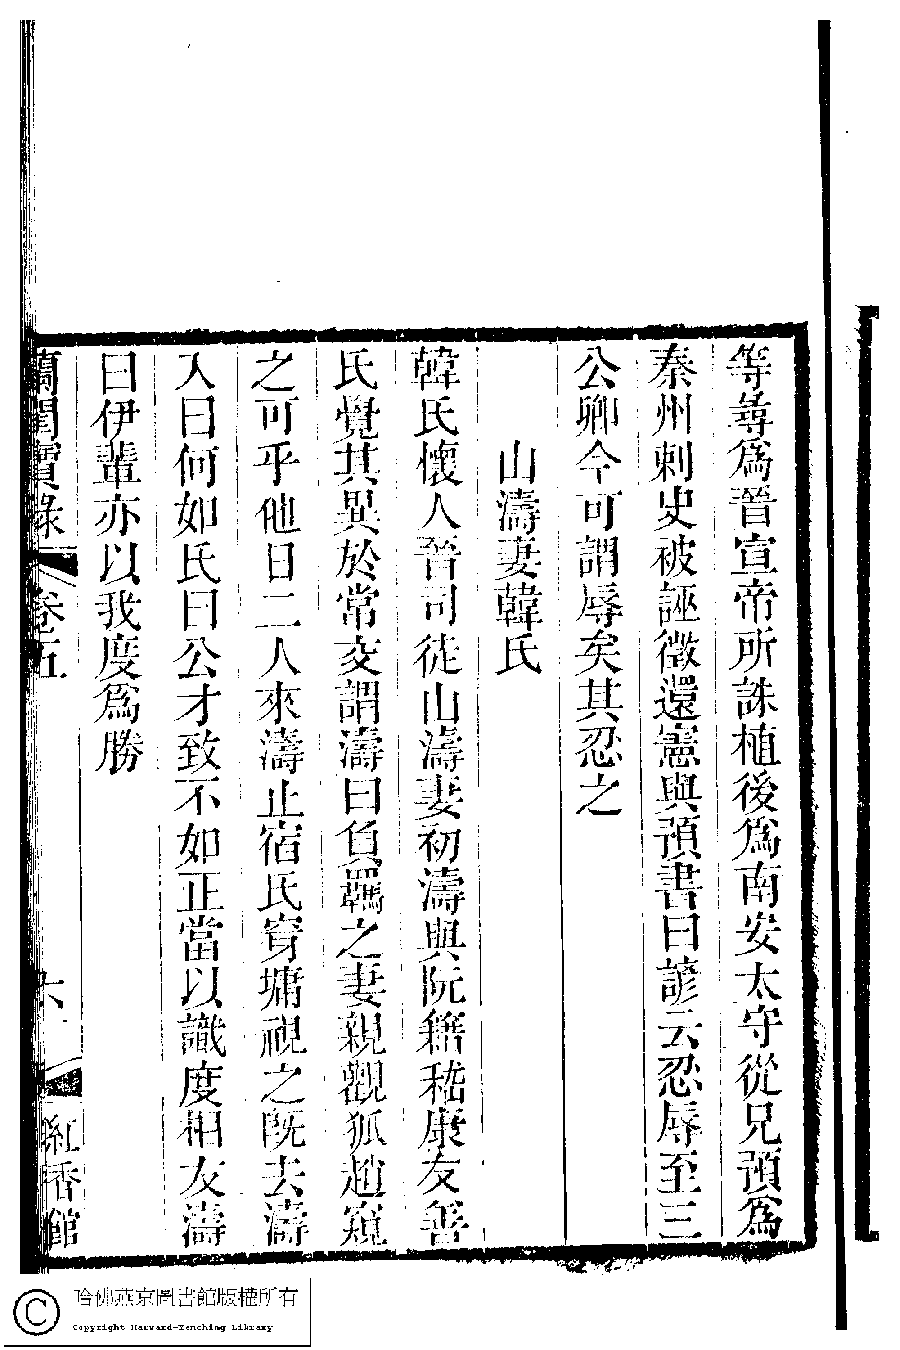 等尋爲晉宣帝所誅植後爲南安太守從兄預爲
秦州刺史被誣徵還憲與預書曰諺云忍辱至三
公卿今可謂辱矣其忍之
山濤妻韓氏
韓氏懷人晉司徒山濤妻初濤與阮籍嵇康友善
氏覺其異於常交謂濤曰負羈之妻親觀狐趙窺
之可乎他日二人來濤止宿氏穿墉視之旣去濤
入曰何如氏曰公才致不如正當以識度相友濤
曰伊輩亦以我度爲勝
蘭閨寶錄
卷五
六
紅香館
哈佛燕京圖書館版權所有
Copyright Harvard-Yenching Library